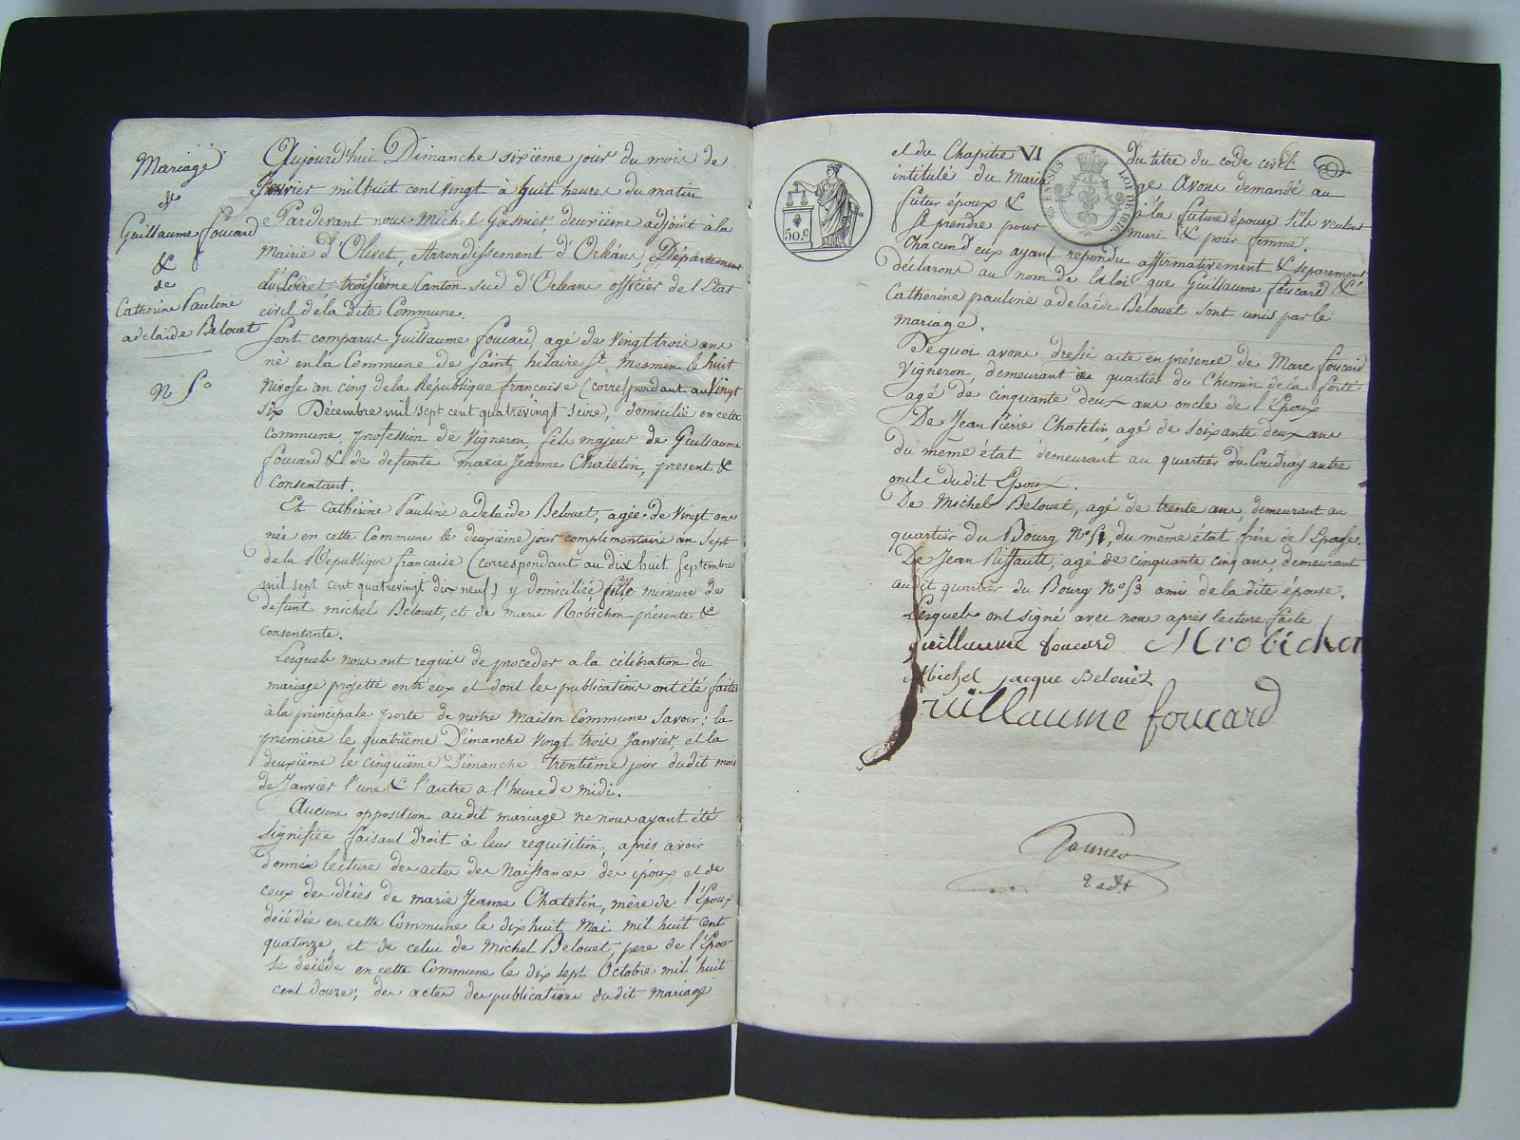 Mariage
de
Guillaume Foucard
&
de
Catherine Pauline
adelaide Belouet
N 5°
Aujourd'hui Dimanche sixième jour du mois de
Fevrier mil huit cent vingt à huit heures du matin
Pardevant nous Michel Gasnier, deuxième adjoint à la
Mairie d'Olivet, Arrondissement d'Orléans, Département
du Loiret troisième Canton sud d'Orleans officier de l'Etat
civil de la dite Commune.
Sont comparus Guillaume Foucard, agé de vingt trois ans
né en la Commune de Saint hilaire St. Mesmin le huit
Nivose an cinq de la République française (correspondant au vingt
six Décembre mil sept cent quatrevingt seize), domicilié en cette
Commune, profession de Vigneron, fils majeur de Guillaume
Foucard & de defunte marie Jeanne Chatelin, present &
Consentant.
Et Catherine Pauline adelaide Belouet, agée de vingt ans
née en cette Commune le deuxième jour complémentaire an sept
de la République francaise (correspondant au dix huit Septembre
mil sept cent quatrevingt dix neuf) y domiciliée fille mineure de
defunt michel Belouet, et de marie Robichon présente &
Consentante.
Lesquels nous ont requis de proceder a la célébration du
mariage projetté entr'eux et dont les publications ont été faites
à la principale porte de notre Maison Commune Savoir: la
première le quatrième Dimanche vingt trois Janvier, et la
deuxième le cinquième Dimanche trentième jour dudit mois
de Janvier l'une & l'autre a l'heure de midi.
Aucune opposition audit mariage ne nous ayant été
signifiée faisant droit à leur requisition, après avoir
donné lecture des actes des Naissances des époux et de
ceux de décès de marie Jeanne Chatelin, mère de l'Epoux
décédée en cette Commune le dix huit Mai mil huit Cent
quatorze, et de celui de Michel Belouet, pere de l'Epou-
se décédé en cette Commune le dix sept Octobre mil huit
cent douze; des actes de publications dudit mariage
50.c
et du Chapitre VI du titre du code civil
intitulé du Mariage Avons demandé au
futur époux & à la future épouse s'ils veulent
se prendre pour mari & pour femme.
Chacun d'eux ayant repondu affirmativement & separement
déclarons au nom de la loi que Guillaume foucard &
Catherine pauline adelaide Belouet sont unis par le
mariage.
De quoi avons dressé acte en présence de Marc Foucard
Vigneron, demeurant quartier du Chemin de la Porte
agé de cinquante deux ans oncle de l'Epoux
De Jean Pierre Chatelin, agé de soixante deux ans
du même état demeurant au quartier du Coudray autre
oncle dudit Epoux.
De Michel Belouet, agé de trente ans, demeurant au
quartier du Bourg No 51, du même état frère de l'Epouse.
De Jean Riffault, agé de cinquante cinq ans, demeurant
audit quartier du Bourg No 53 ami de la dite épouse.
Lesquels ont signé avec nous après lecture faite
guillaume foucard M robichon
Michel jacque Belouet
Guillaume foucard
Gasnier